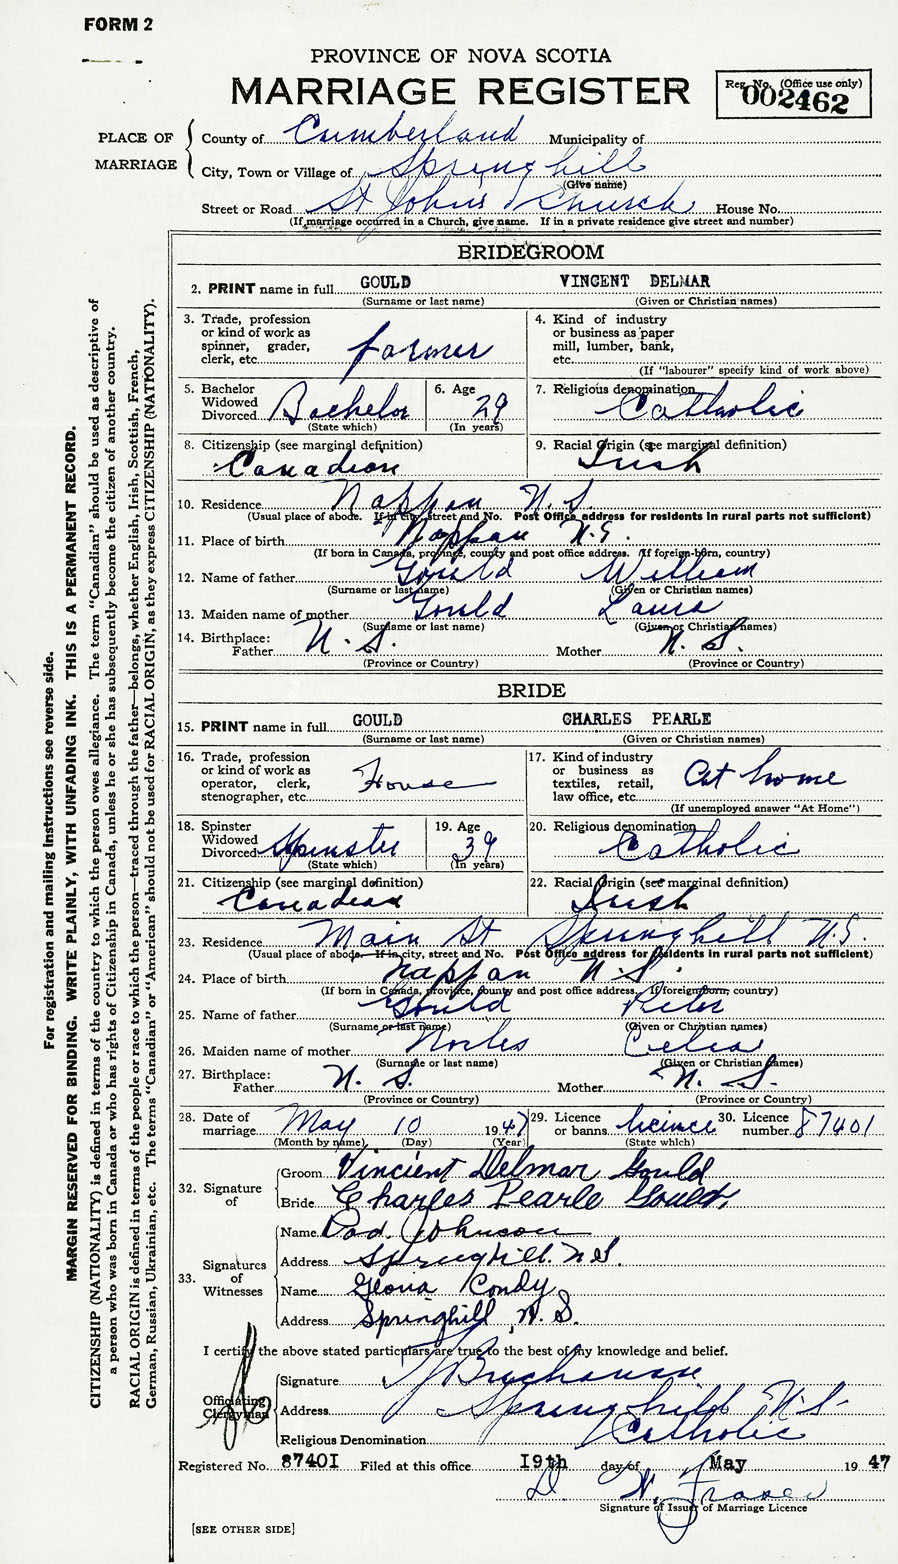 FORM 2
PROVINCE OF NOVA SCOTIA
MARRIAGE REGISTER
Reg. No. (Office use only)
002462
PLACE OF MARRIAGE
County of Cumberland Municipality of
City, Town or Village of Springhill
(Give name)
Street or Road St John's Church House No.
(If marriage occurred in a Church, give name. If in a private residence give street and number)
BRIDEGROOM
2. PRINT name in full GOULD VINCENT DELMAR
(Surname or last name) (Given or Christian names)
3. Trade, profession or kind of work as spinner, grader, clerk, etc. farmer
4. Kind of industry or business as paper mill, lumber, bank, etc.
(If "labourer" specify kind of work above)
5. Bachelor Widowed Divorced Bachelor
(State which)
6. Age 29
(In years)
7. Religious denomination Catholic
8. Citizenship (see marginal definition) Canadian
9. Racial Origin (see marginal definition) Irish
10. Residence Nappan N.S
(Usual place of abode. If in city, street and No. Post Office address for residents in rural parts not sufficient)
11. Place of birth Nappan N.S.
(If born in Canada, province, county and post office address. If foreign-born, country)
12. Name of father Gould William
(Surname or last name) (Given or Christian names)
13. Maiden name of mother Gould Laura
(Surname or last name) (Given or Christian names)
14. Birthplace: Father N.S. Mother N.S.
(Province or Country) (Province or Country)
BRIDE
15. PRINT name in full GOULD CHARLES PEARLE
(Surname or last name) (Given or Christian names)
16. Trade, profession or kind of work as operator, clerk, stenographer, etc. House
17. Kind of industry or business as textiles, retail, law office, etc. At home
(If unemployed answer "At Home")
18. Spinster Widowed Divorced Spinster
(State which)
19. Age 39
(In years)
20. Religious denomination Catholic
21. Citizenship (see marginal definition) Canadian
22. Racial Origin (see marginal definition) Irish
23. Residence Main St Springhill N.S.
(Usual place of abode. If in city, street and No. Post Office address for residents in rural parts not sufficient)
24. Place of birth Nappan N.S.
(If born in Canada, province, county and post office address. If foreign-born, country)
25. Name of father Gould Peter
(Surname or last name) (Given or Christian names)
26. Maiden name of mother Noiles Celia
(Surname or last name) (Given or Christian names)
27. Birthplace: Father N.S. Mother N.S.
(Province or Country) (Province or Country)
28. Date of marriage May 10 1947
(Month by name) (Day) (Year)
29. Licence or banns licence
(State which)
30. Licence number 87401
32. Signature of
Groom Vincient Delmar Gould
Bride Charles Pearle Gould
33. Signatures of Witnesses
Name Johnson
Address Springhill. N.S.
Name Condy
Address Springhill N.S.
I certify the above stated particulars are true to the best of my knowledge and belief.
Officiating Clergyman
Signature Buchanan
Address Springhill N.S-
Religious Denomination Catholic
Registered No. 87401 Filed at this office 19th day of May 1947
D. W. Fraser
Signature of Issuer of Marriage Licence
[SEE OTHER SIDE]
For registration and mailing instructions see reverse side.
MARGIN RESERVED FOR BINDING. WRITE PLAINLY, WITH UNFADING INK. THIS IS A PERMANENT RECORD.
CITIZENSHIP (NATIONALITY) is defined in terms of the country to which the person owes allegiance. The term "Canadian" should be used as descriptive of
a person who was born in Canada or who has rights of Citizenship in Canada, unless he or she has subsequently become the citizen of another country.
RACIAL ORIGIN is defined in terms of the people or race to which the person—traced through the father—belongs, whether English, Irish, Scottish, French,
German, Russian, Ukrainian, etc. The terms "Canadian" or "American" should not be used for RACIAL ORIGIN, as they express CITIZENSHIP (NATIONALITY).